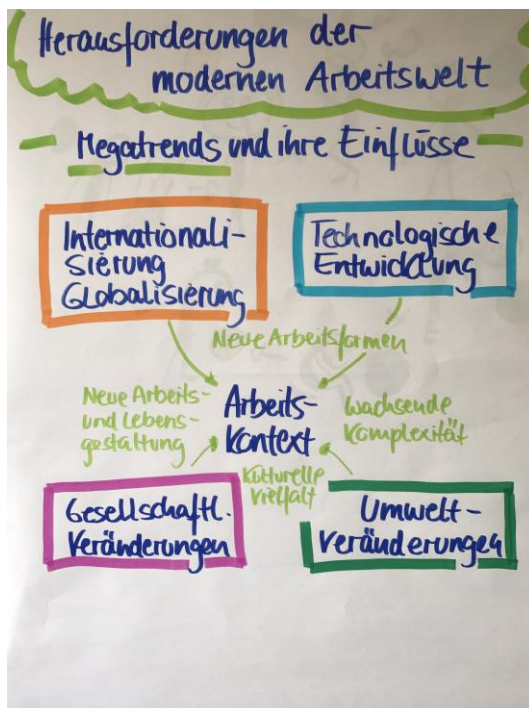 Herausforderungen der
modernen Arbeitswelt
Megatrends und ihre Einflüsse
Internationali-
sierung
Globalisierung
Technologische
Entwicklung
Neue Arbeitsformen
Neue Arbeits-
und Lebens-
gestaltung
Arbeits-
kontext
wachsende
Komplexität
kulturelle
Vielfalt
Gesellschaftl.
Veränderungen
Umwelt-
veränderungen